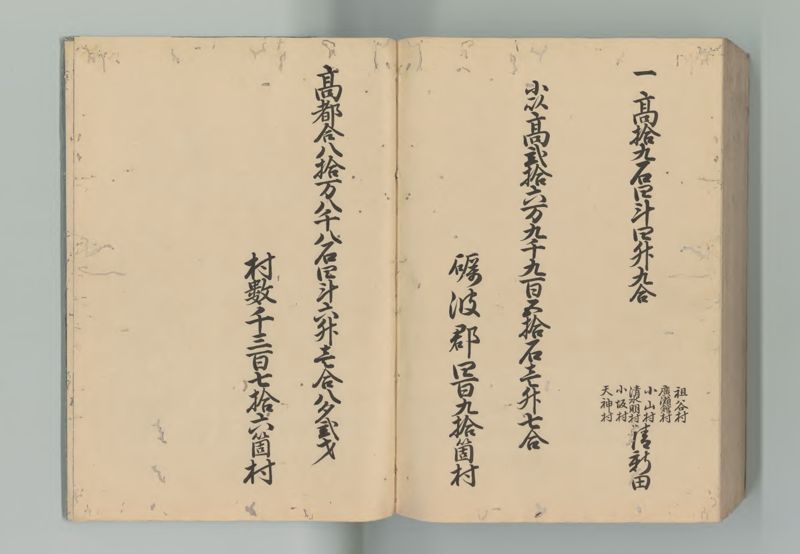 一 高拾九石四斗四升九合
祖谷村
廣瀬舘村
小山村
清水明村
小坂村
天神村
請新田
小以高弐拾六万九千九百五拾石壱升七合
礪波郡四百九拾箇村
高都合八拾万八千八石四斗六升壱合八夕弐才
村數千三百七拾六箇村